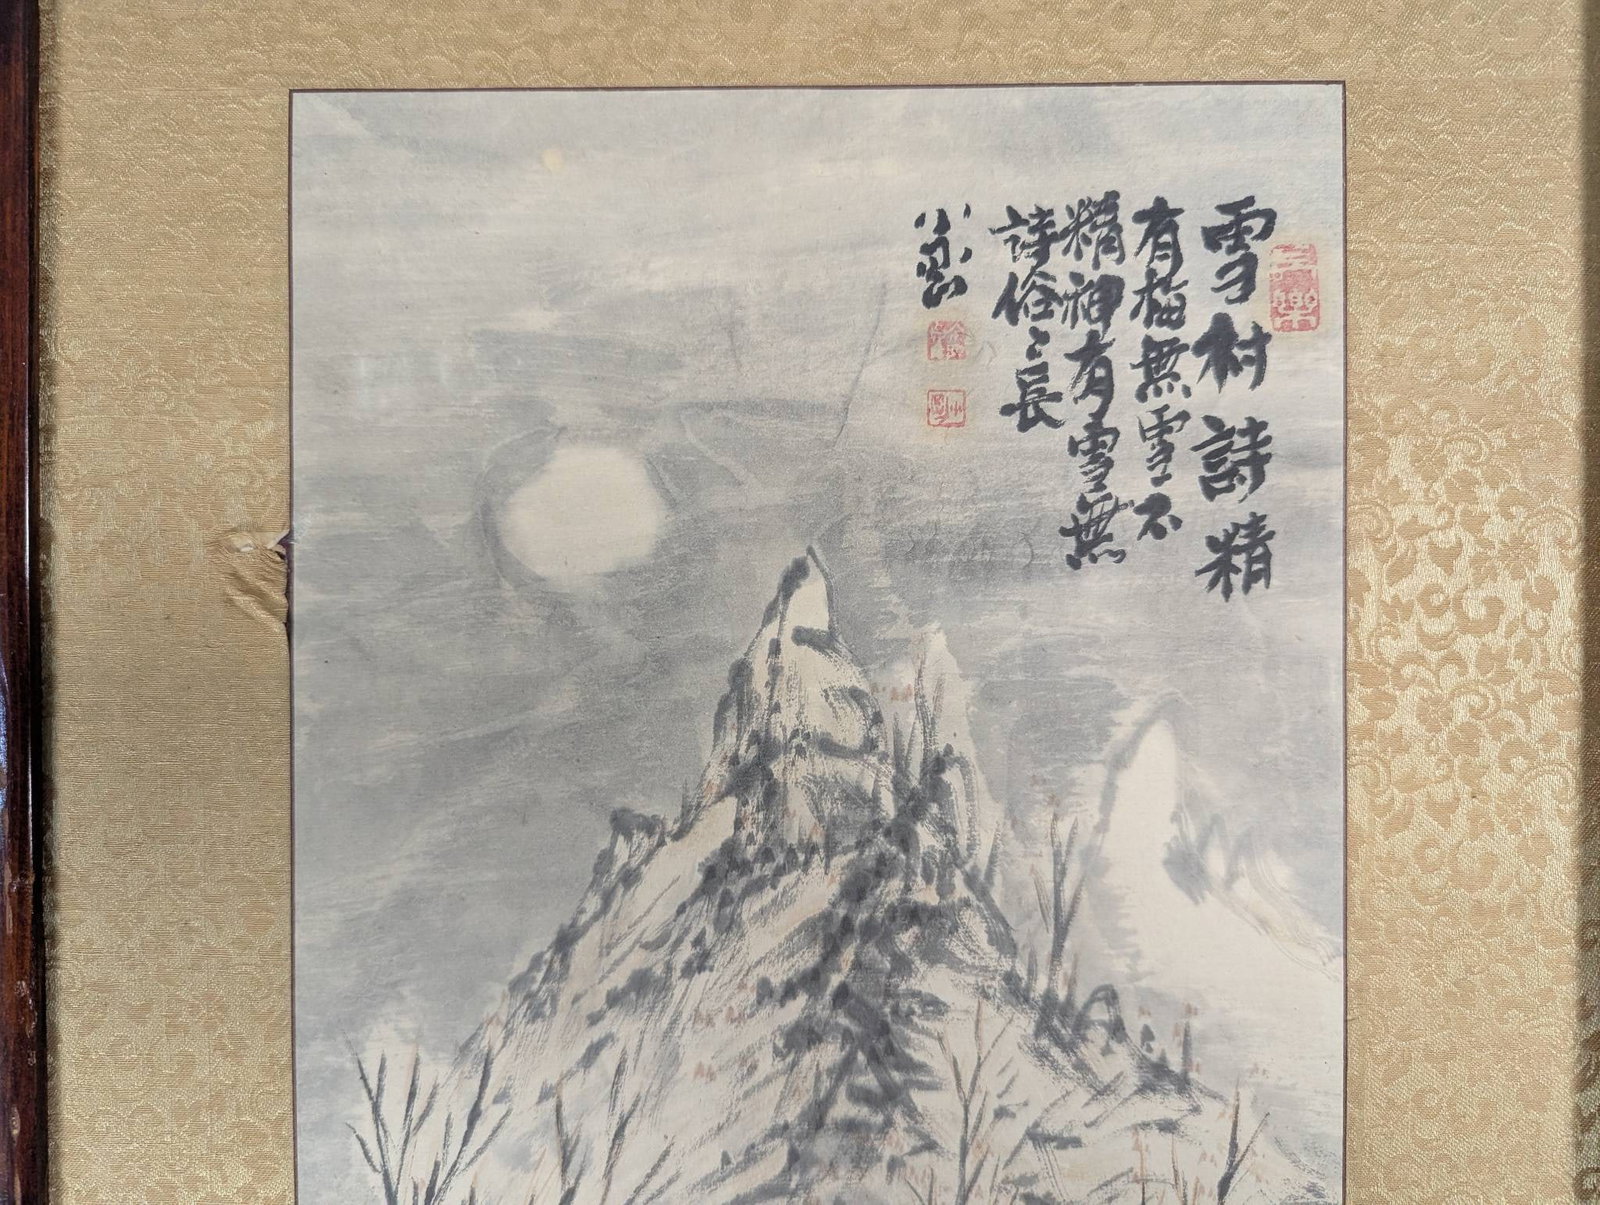 雪村詩精
有梅無雪不
精神有雪無
詩俗〻長